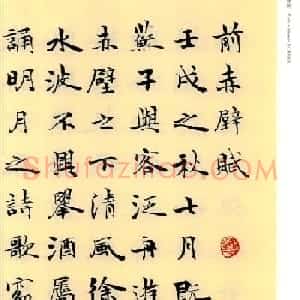 前赤壁賦
壬戌之秋七月既
蘇子與客泛舟遊
赤壁之下清風徐
水波不興舉酒屬
誦明月之詩歌窈